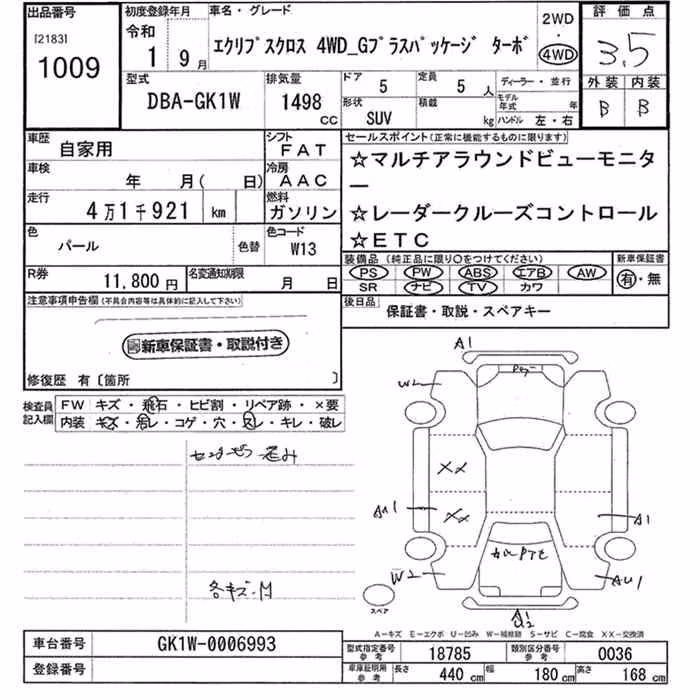 出品番号
[2183]
1009
初度登録年月
令和
1 9月
車名・グレード
エクリプスクロス 4WD_Gプラスパッケージ ターボ
2WD
・
4WD
評価点
3.5
外装 内装
B B
型式
DBA-GK1W
排気量
1498
cc
ドア
5
定員
5 人
形状
SUV
積載
kg
ディーラー・並行
モデル年式 年
ハンドル 左・右
車歴
自家用
シフト
FAT
車検
年 月( 日)
冷房
AAC
走行
4万1千921 km
燃料
ガソリン
色
パール
色替
色コード
W13
R券
11,800円
名変通知期限
月 日
セールスポイント(正常に機能するものに限ります)
☆マルチアラウンドビューモニタ
ー
☆レーダークルーズコントロール
☆ETC
装備品 (純正品に限り○をつけてください)
PS PW ABS エアB AW
SR ナビ TV カワ
新車保証書
有・無
後日品
保証書・取説・スペアキー
注意事項申告欄(不具合内容等は具体的に記入して下さい)
新車保証書・取説付き
修復歴 有〔箇所 〕
検査員
記入欄
FW キズ・飛石・ヒビ割・リペア跡・×要
内装 キズ・汚レ・コゲ・穴・スレ・キレ・破レ
各キズ・凹
A1
W2
XX
XX
A1
W2
AU1
スペア
A-キズ E-エクボ U-凹み W-補修跡 S-サビ C-腐食 XX-交換済
車台番号
GK1W-0006993
登録番号
型式指定番号
参考
18785
類別区分番号
参考
0036
車庫証明用
参考
長さ
440 cm
幅
180 cm
高さ
168 cm